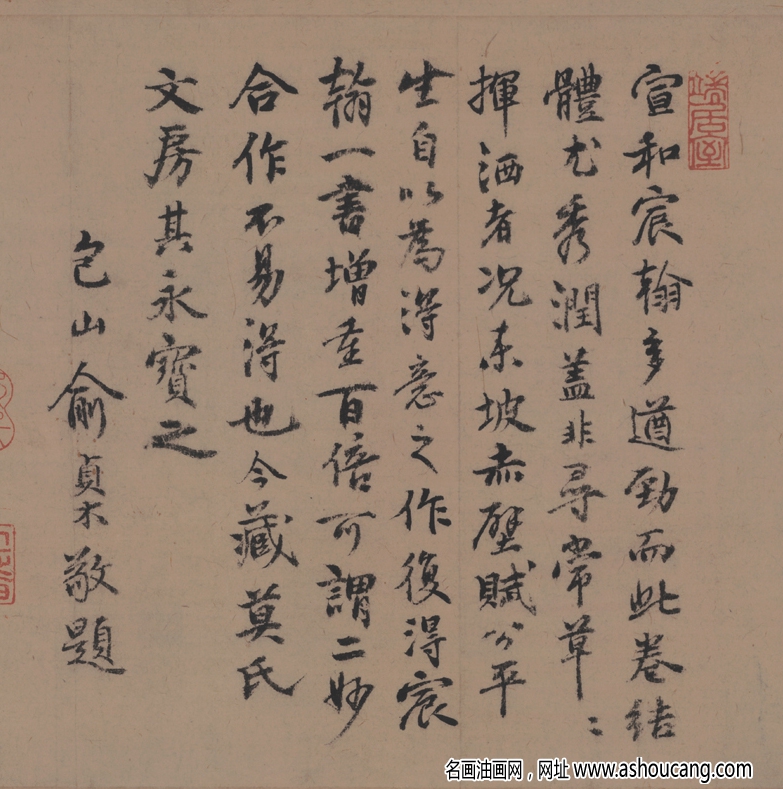 宣和宸翰多遒勁而此卷結
體尤秀潤蓋非尋常草〻
揮洒者况東坡赤壁賦公平
生自以為得意之作復得宸
翰一書增重百倍可謂二妙
合作不易得也今藏莫氏
文房其永寶之
包山俞貞木敬題
端居室
名画油画网，网址 www.ashoucang.com